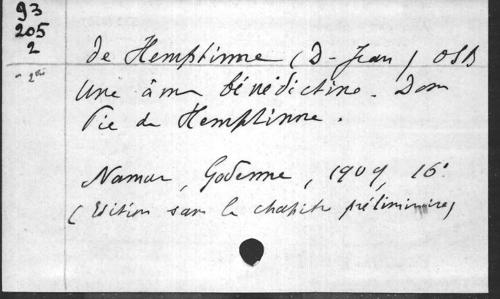 93
205
2
de Hemptinne (D. Jean) OSB
Une âme bénédictine. Dom
Pie de Hemptinne.
Namur, Godenne, 1909, 16°
(Edition sans le chapitre préliminaire)